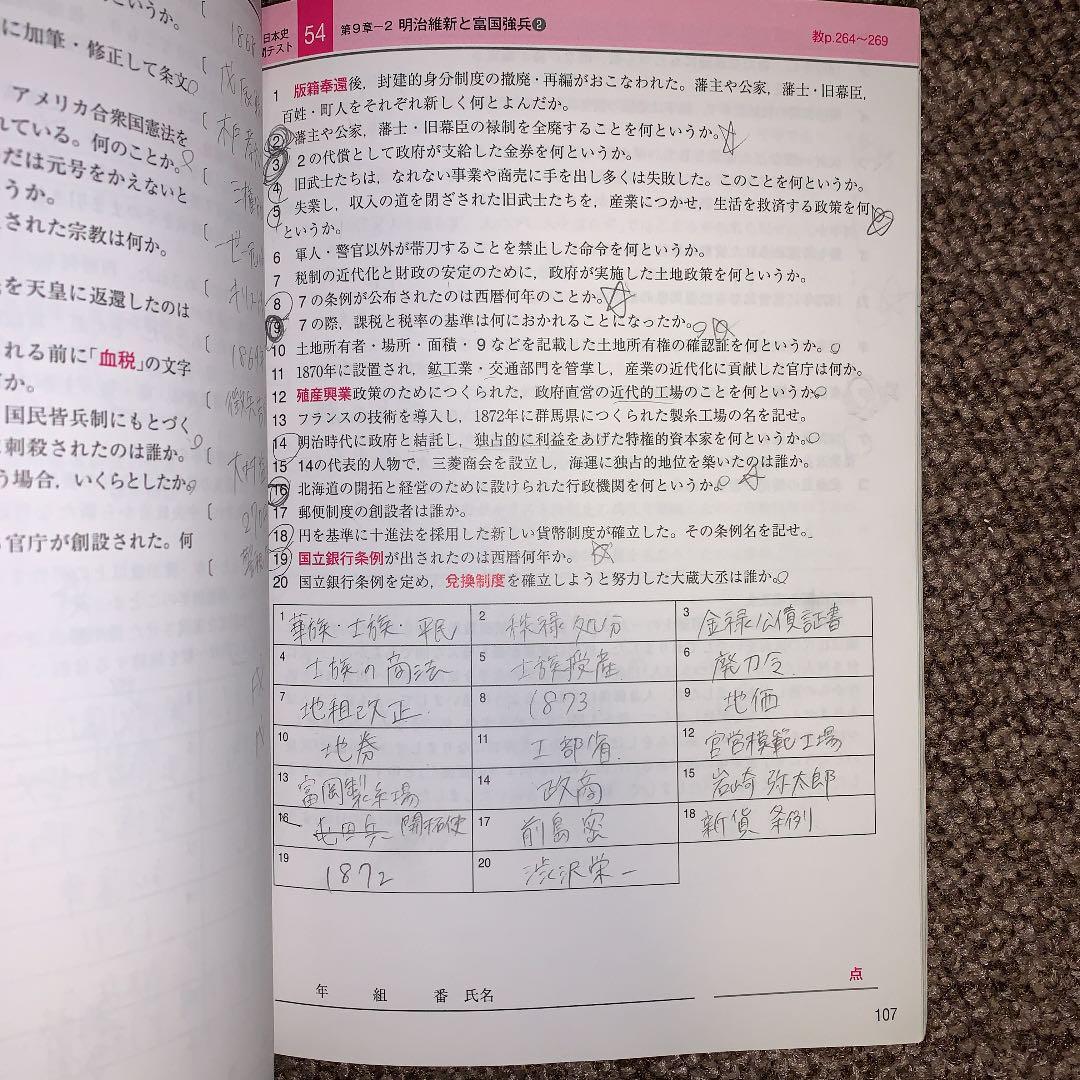 いうか。
に加筆・修正して条文
アメリカ合衆国憲法を
れている。何のことか。
だは元号をかえないと
うか。
された宗教は何か。
を天皇に返還したのは
れる前に「血税」の文字
何か。
国民皆兵制にもとづく
刺殺されたのは誰か。
う場合，いくらとしたか。
官庁が創設された。何
日本史
問テスト 54 第9章−2 明治維新と富国強兵❷ 教p.264〜269
1 版籍奉還後，封建的身分制度の撤廃・再編がおこなわれた。藩主や公家，藩士・旧幕臣，
百姓・町人をそれぞれ新しく何とよんだか。
2 藩主や公家，藩士・旧幕臣の禄制を全廃することを何というか。
3 2の代償として政府が支給した金券を何というか。
4 旧武士たちは，なれない事業や商売に手を出し多くは失敗した。このことを何というか。
5 失業し，収入の道を閉ざされた旧武士たちを，産業につかせ，生活を救済する政策を何
というか。
6 軍人・警官以外が帯刀することを禁止した命令を何というか。
7 税制の近代化と財政の安定のために，政府が実施した土地政策を何というか。
8 7の条例が公布されたのは西暦何年のことか。
9 7の際，課税と税率の基準は何におかれることになったか。
10 土地所有者・場所・面積・9などを記載した土地所有権の確認証を何というか。
11 1870年に設置され，鉱工業・交通部門を管掌し，産業の近代化に貢献した官庁は何か。
12 殖産興業政策のためにつくられた，政府直営の近代的工場のことを何というか。
13 フランスの技術を導入し，1872年に群馬県につくられた製糸工場の名を記せ。
14 明治時代に政府と結託し，独占的に利益をあげた特権的資本家を何というか。
15 14の代表的人物で，三菱商会を設立し，海運に独占的地位を築いたのは誰か。
16 北海道の開拓と経営のために設けられた行政機関を何というか。
17 郵便制度の創設者は誰か。
18 円を基準に十進法を採用した新しい貨幣制度が確立した。その条例名を記せ。
19 国立銀行条例が出されたのは西暦何年か。
20 国立銀行条例を定め，兌換制度を確立しようと努力した大蔵大丞は誰か。
1 華族・士族・平民 2 秩禄処分 3 金禄公債証書
4 士族の商法 5 士族授産 6 廃刀令
7 地租改正 8 1873 9 地価
10 地券 11 工部省 12 官営模範工場
13 富岡製糸場 14 政商 15 岩崎弥太郎
16 屯田兵 開拓使 17 前島密 18 新貨条例
19 1872 20 渋沢栄一
点
年 組 番 氏名
107